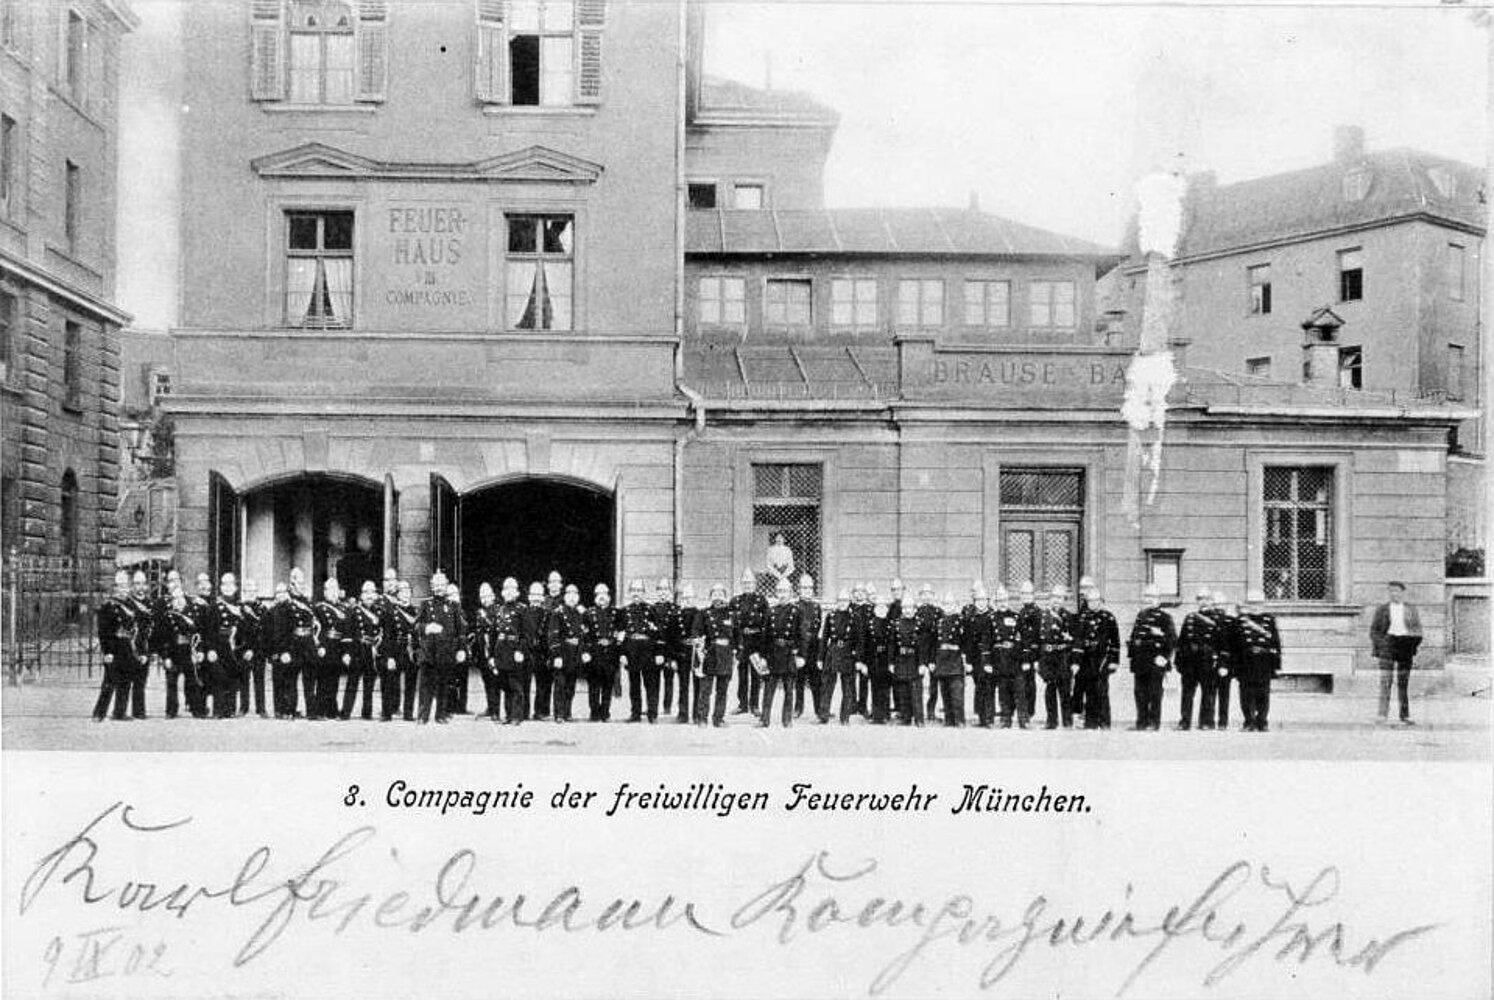 FEUER-
HAUS
III
COMPAGNIE.
BRAUSE BA
3. Compagnie der freiwilligen Feuerwehr München.
Karl Friedmann Kompagnieführer
9 IX 02